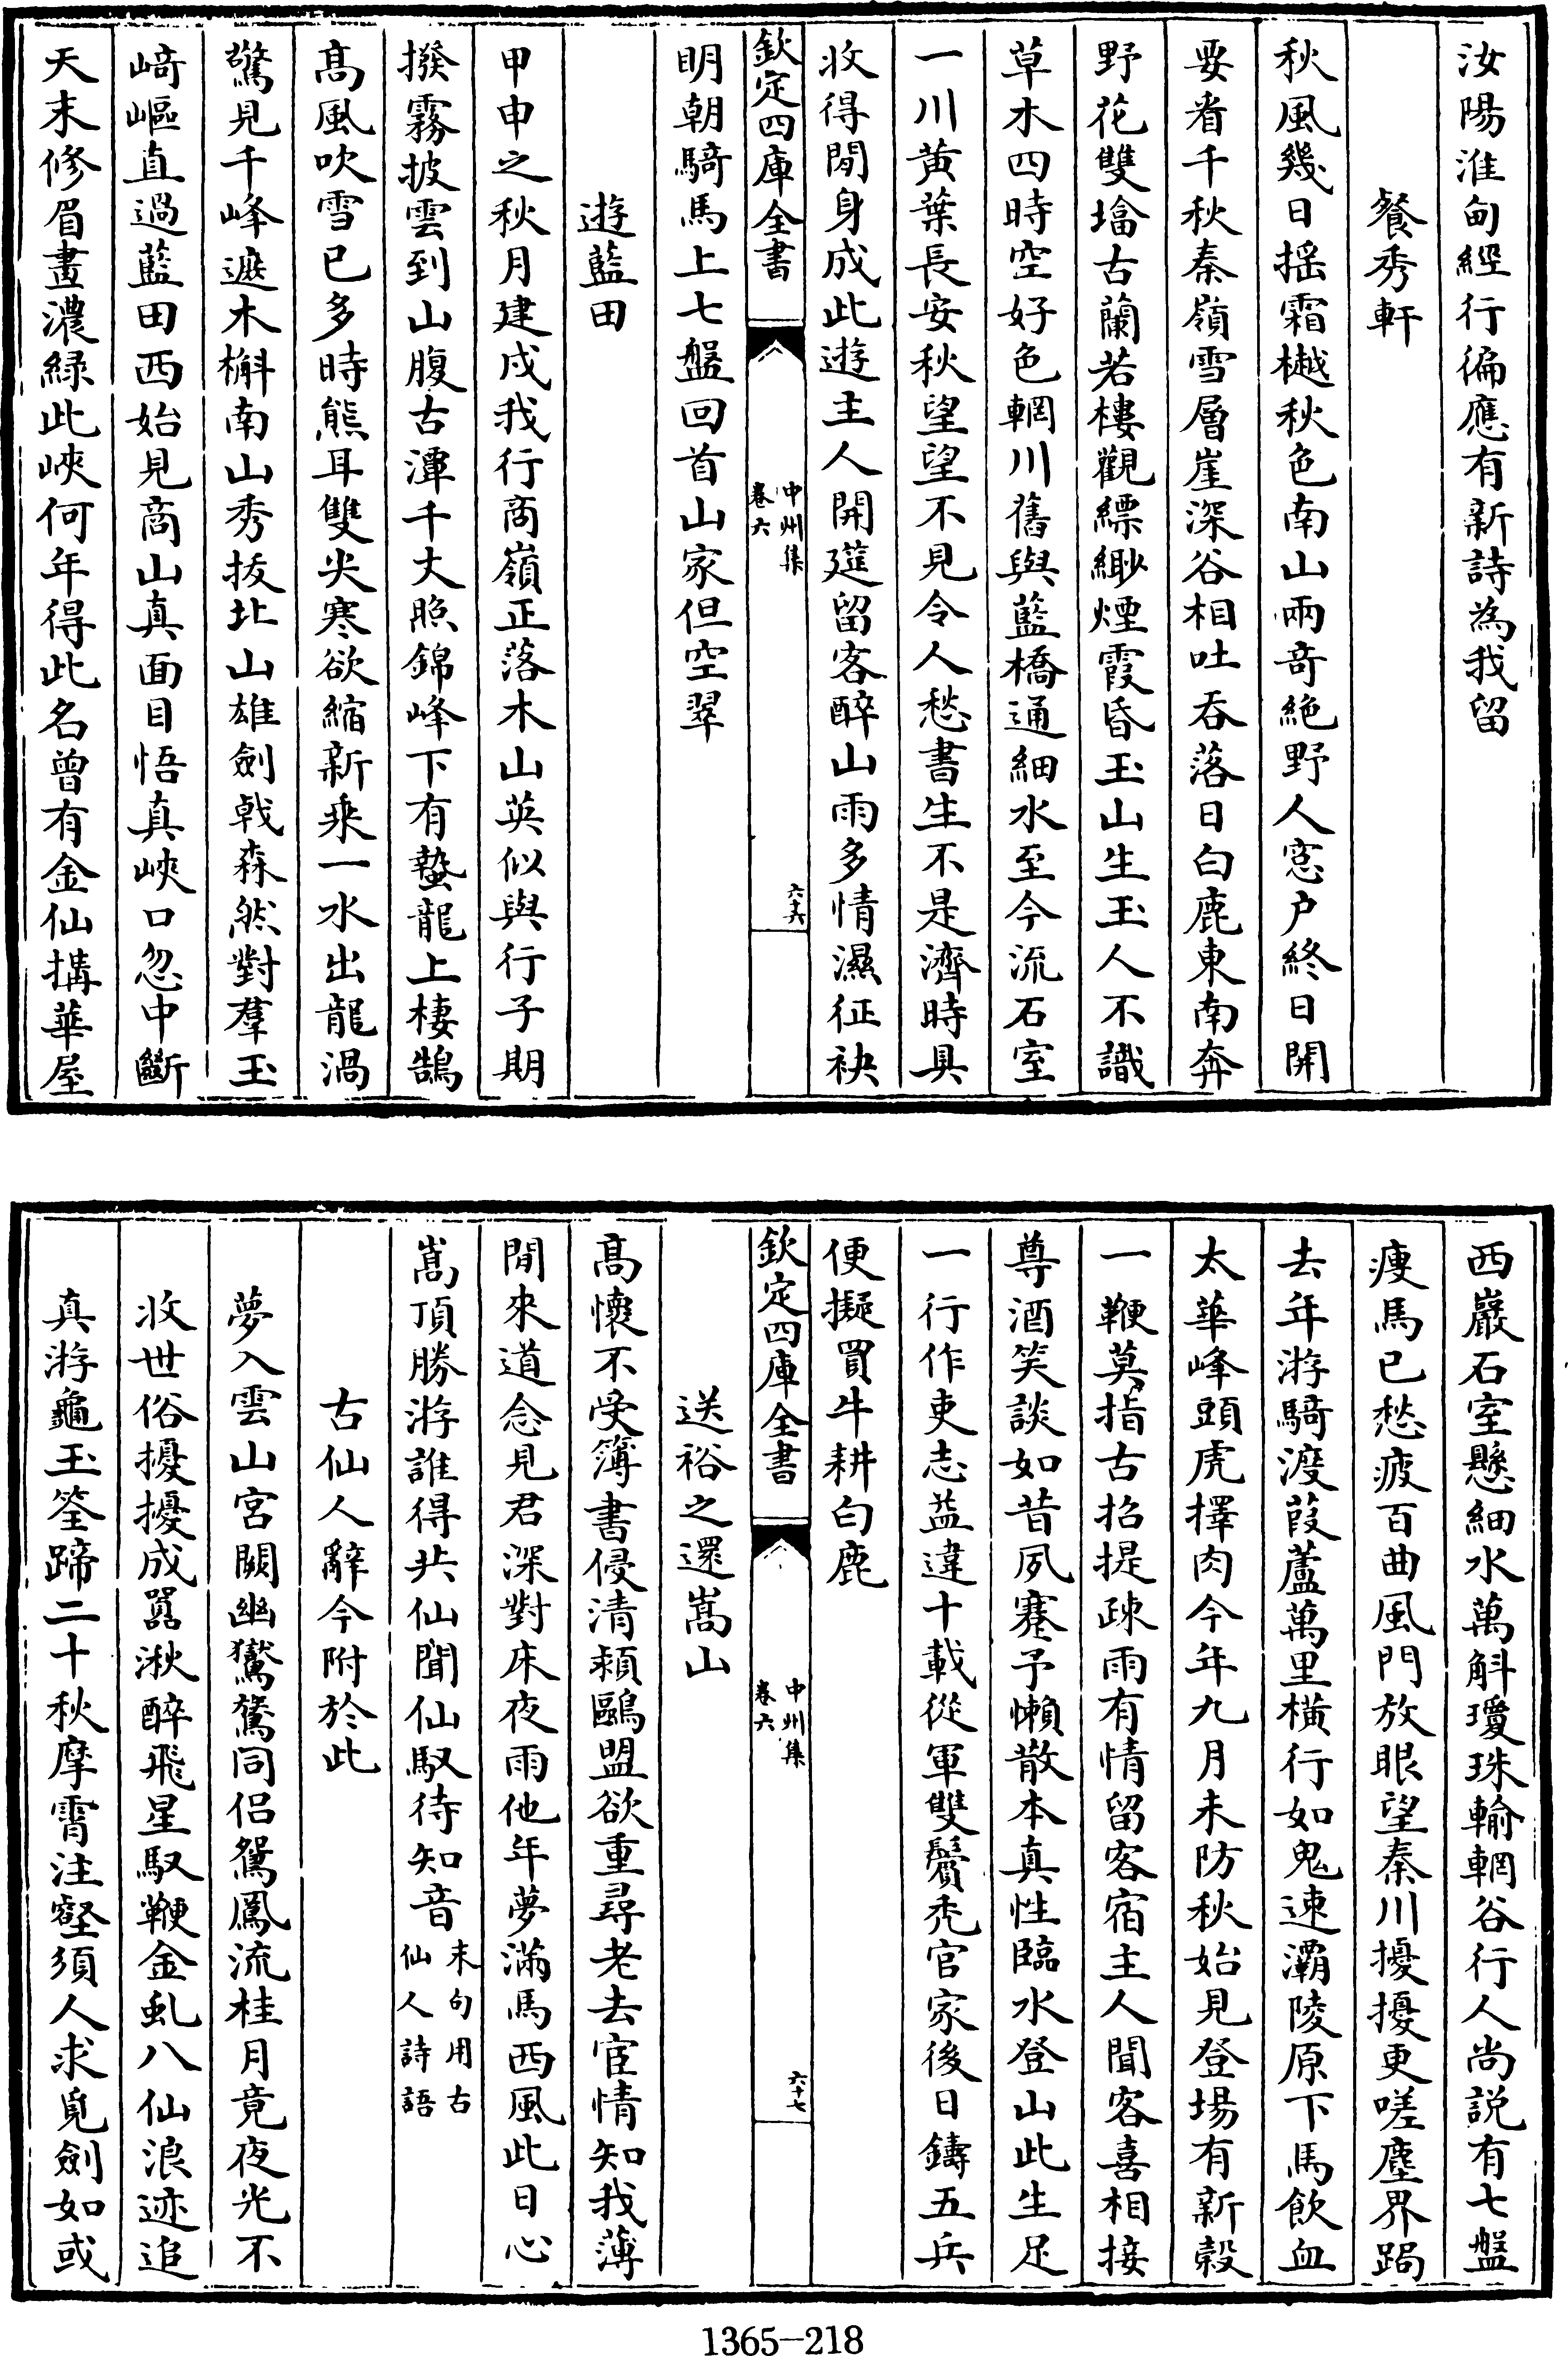 汝陽淮甸經行徧應有新詩為我留
餐秀軒
秋風幾日揺霜樾秋色南山兩竒絶野人窓户終日開
要㸔千秋秦嶺雪層崖深谷相吐吞落日白鹿東南奔
野花雙墖古蘭若樓觀縹緲煙霞昏玉山生玉人不識
草木四時空好色輞川舊與藍橋通細水至今流石室
一川黄葉長安秋望望不見令人愁書生不是濟時具
收得閒身成此遊主人開筵留客醉山雨多情濕征袂
欽定四庫全書
中州集
卷六
六十六
明朝騎馬上七盤回首山家但空翠
遊藍田
甲申之秋月建戍我行商嶺正落木山英似與行子期
撥霧披雲到山腹古潭千丈照錦峰下有蟄龍上棲鵠
髙風吹雪已多時熊耳雙尖寒欲縮新乘一水出龍渦
驚見千峰遮木槲南山秀拔北山雄劍㦸森然對羣玉
﨑嶇直過藍田西始見商山真面目悟真峽口忽中斷
天末修眉畫濃緑此峽何年得此名曾有金仙搆華屋
西巖石室懸細水萬斛瓊珠輸輞谷行人尚説有七盤
痩馬已愁疲百曲風門放眼望秦川擾擾更嗟塵界跼
去年游騎渡葭蘆萬里横行如鬼速灞陵原下馬飲血
太華峰頭虎擇肉今年九月未防秋始見登場有新榖
一鞭莫指古招提疎雨有情留客宿主人聞客喜相接
尊酒笑談如昔夙蹇予懶散本真性臨水登山此生足
一行作吏志益違十載從軍雙鬢禿官家後日鑄五兵
便擬買牛耕白鹿
欽定四庫全書
中州集
卷六
六十七
送裕之還嵩山
髙懷不受簿書侵清潁鷗盟欲重尋老去宦情知我薄
閒來道念見君深對床夜雨他年夢滿馬西風此日心
嵩頂勝游誰得共仙聞仙馭待知音末句用古仙人詩語
古仙人辭今附於此
夢入雲山宮闕幽鸑鷟同侣鴛鳳流桂月竟夜光不
收世俗擾擾成嚚湫醉飛星馭鞭金虬八仙浪迹追
真游龜玉筌蹄二十秋摩霄注壑須人求覓劍如或
1365-218